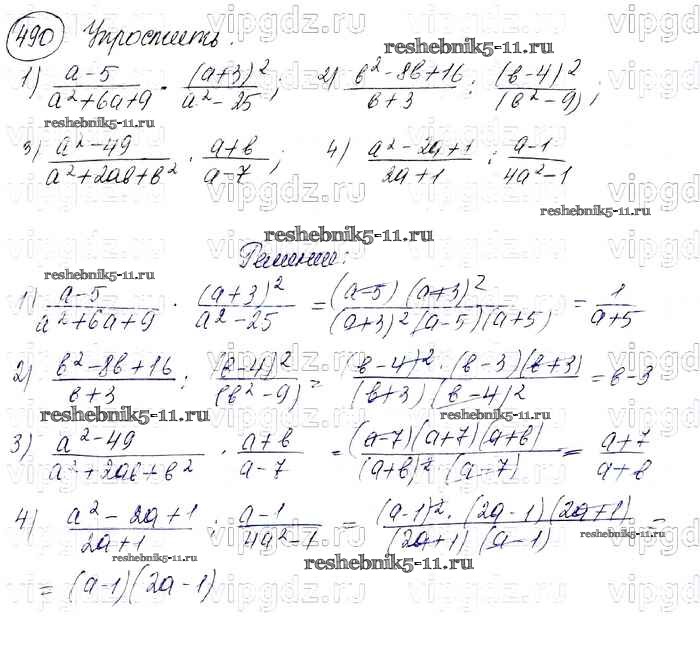 490 Упростить.
1) (a-5)/(a²+6a+9) · (a+3)²/(a²-25); 2) (b²-8b+16)/(b+3) : (b-4)²/(b²-9);
reshebnik5-11.ru
reshebnik5-11.ru
3) (a²-49)/(a²+2ab+b²) · (a+b)/(a-7); 4) (a²-2a+1)/(2a+1) : (a-1)/(4a²-1)
reshebnik5-11.ru
reshebnik5-11.ru
Решение:
reshebnik5-11.ru
1) (a-5)/(a²+6a+9) · (a+3)²/(a²-25) = (a-5)(a+3)²/((a+3)²(a-5)(a+5)) = 1/(a+5)
2) (b²-8b+16)/(b+3) : (b-4)²/(b²-9) = (b-4)²·(b-3)(b+3)/((b+3)(b-4)²) = b-3
reshebnik5-11.ru
reshebnik5-11.ru
3) (a²-49)/(a²+2ab+b²) · (a+b)/(a-7) = (a-7)(a+7)(a+b)/((a+b)²(a-7)) = (a+7)/(a+b)
4) (a²-2a+1)/(2a+1) : (a-1)/(4a²-1) = (a-1)²·(2a-1)(2a+1)/((2a+1)(a-1)) =
reshebnik5-11.ru
reshebnik5-11.ru
= (a-1)(2a-1)
vipgdz.ru